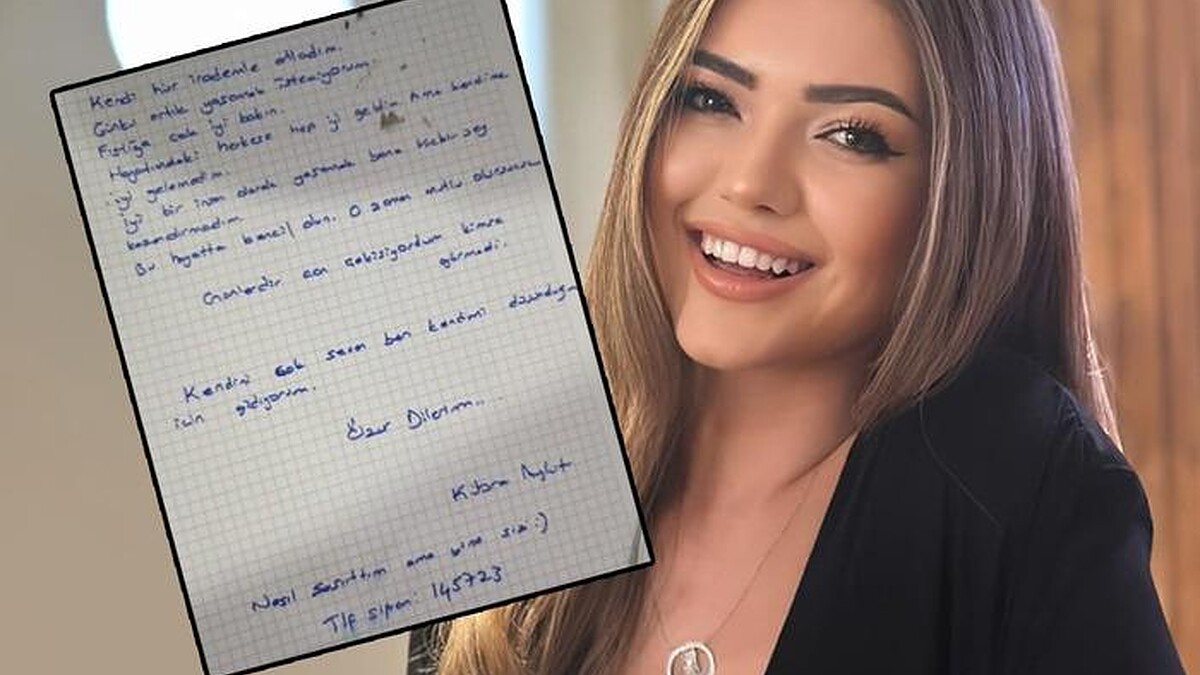 Kendi hür irademle atladım.
Çünkü artık yaşamak istemiyorum.
Fıstığa çok iyi bakın.
Hayatındaki herkese hep iyi geldim Ama kendime
iyi gelemedim.
İyi bir insan olarak yaşamak bana hiçbir şey
kazandırmadı.
Bu hayatta bencil olun. O zaman mutlu olursunuz
can çekişiyordum kimse
görmedi.
Kendimi çok seven ben kendimi düşündüğüm
için gidiyorum.
Özür Dilerim....
Kübra Aykut
Nasıl şaşırttım ama yine sizi :)
Tlf şifrem: 145723